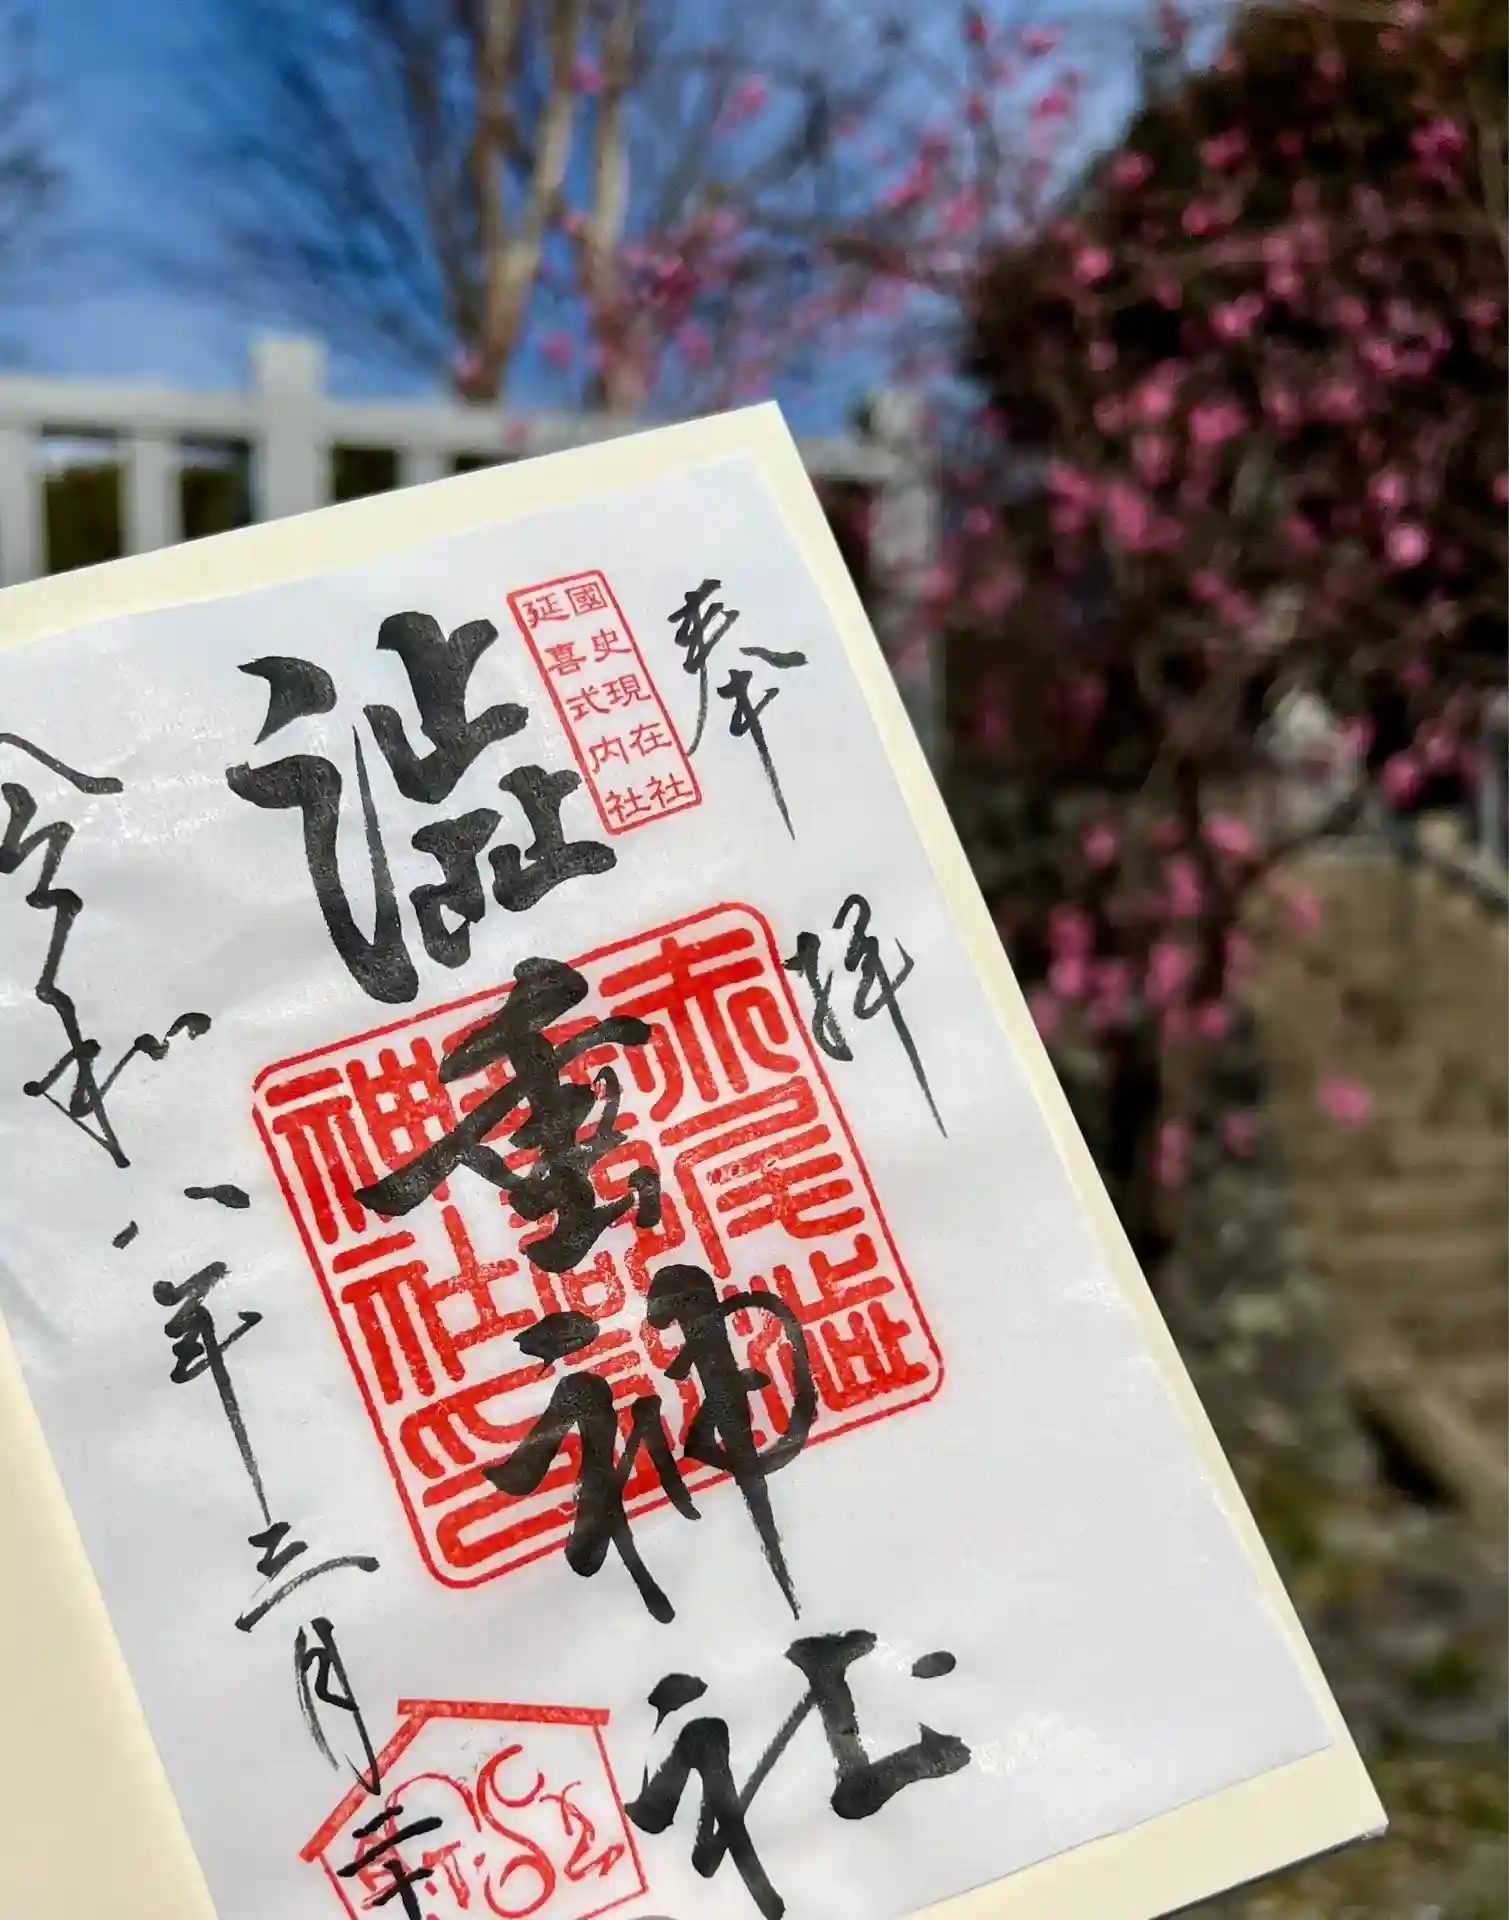 奉拝
國史現在社
延喜式内社
澁垂神社
赤尾澁
神社之印
令和八年三月二十